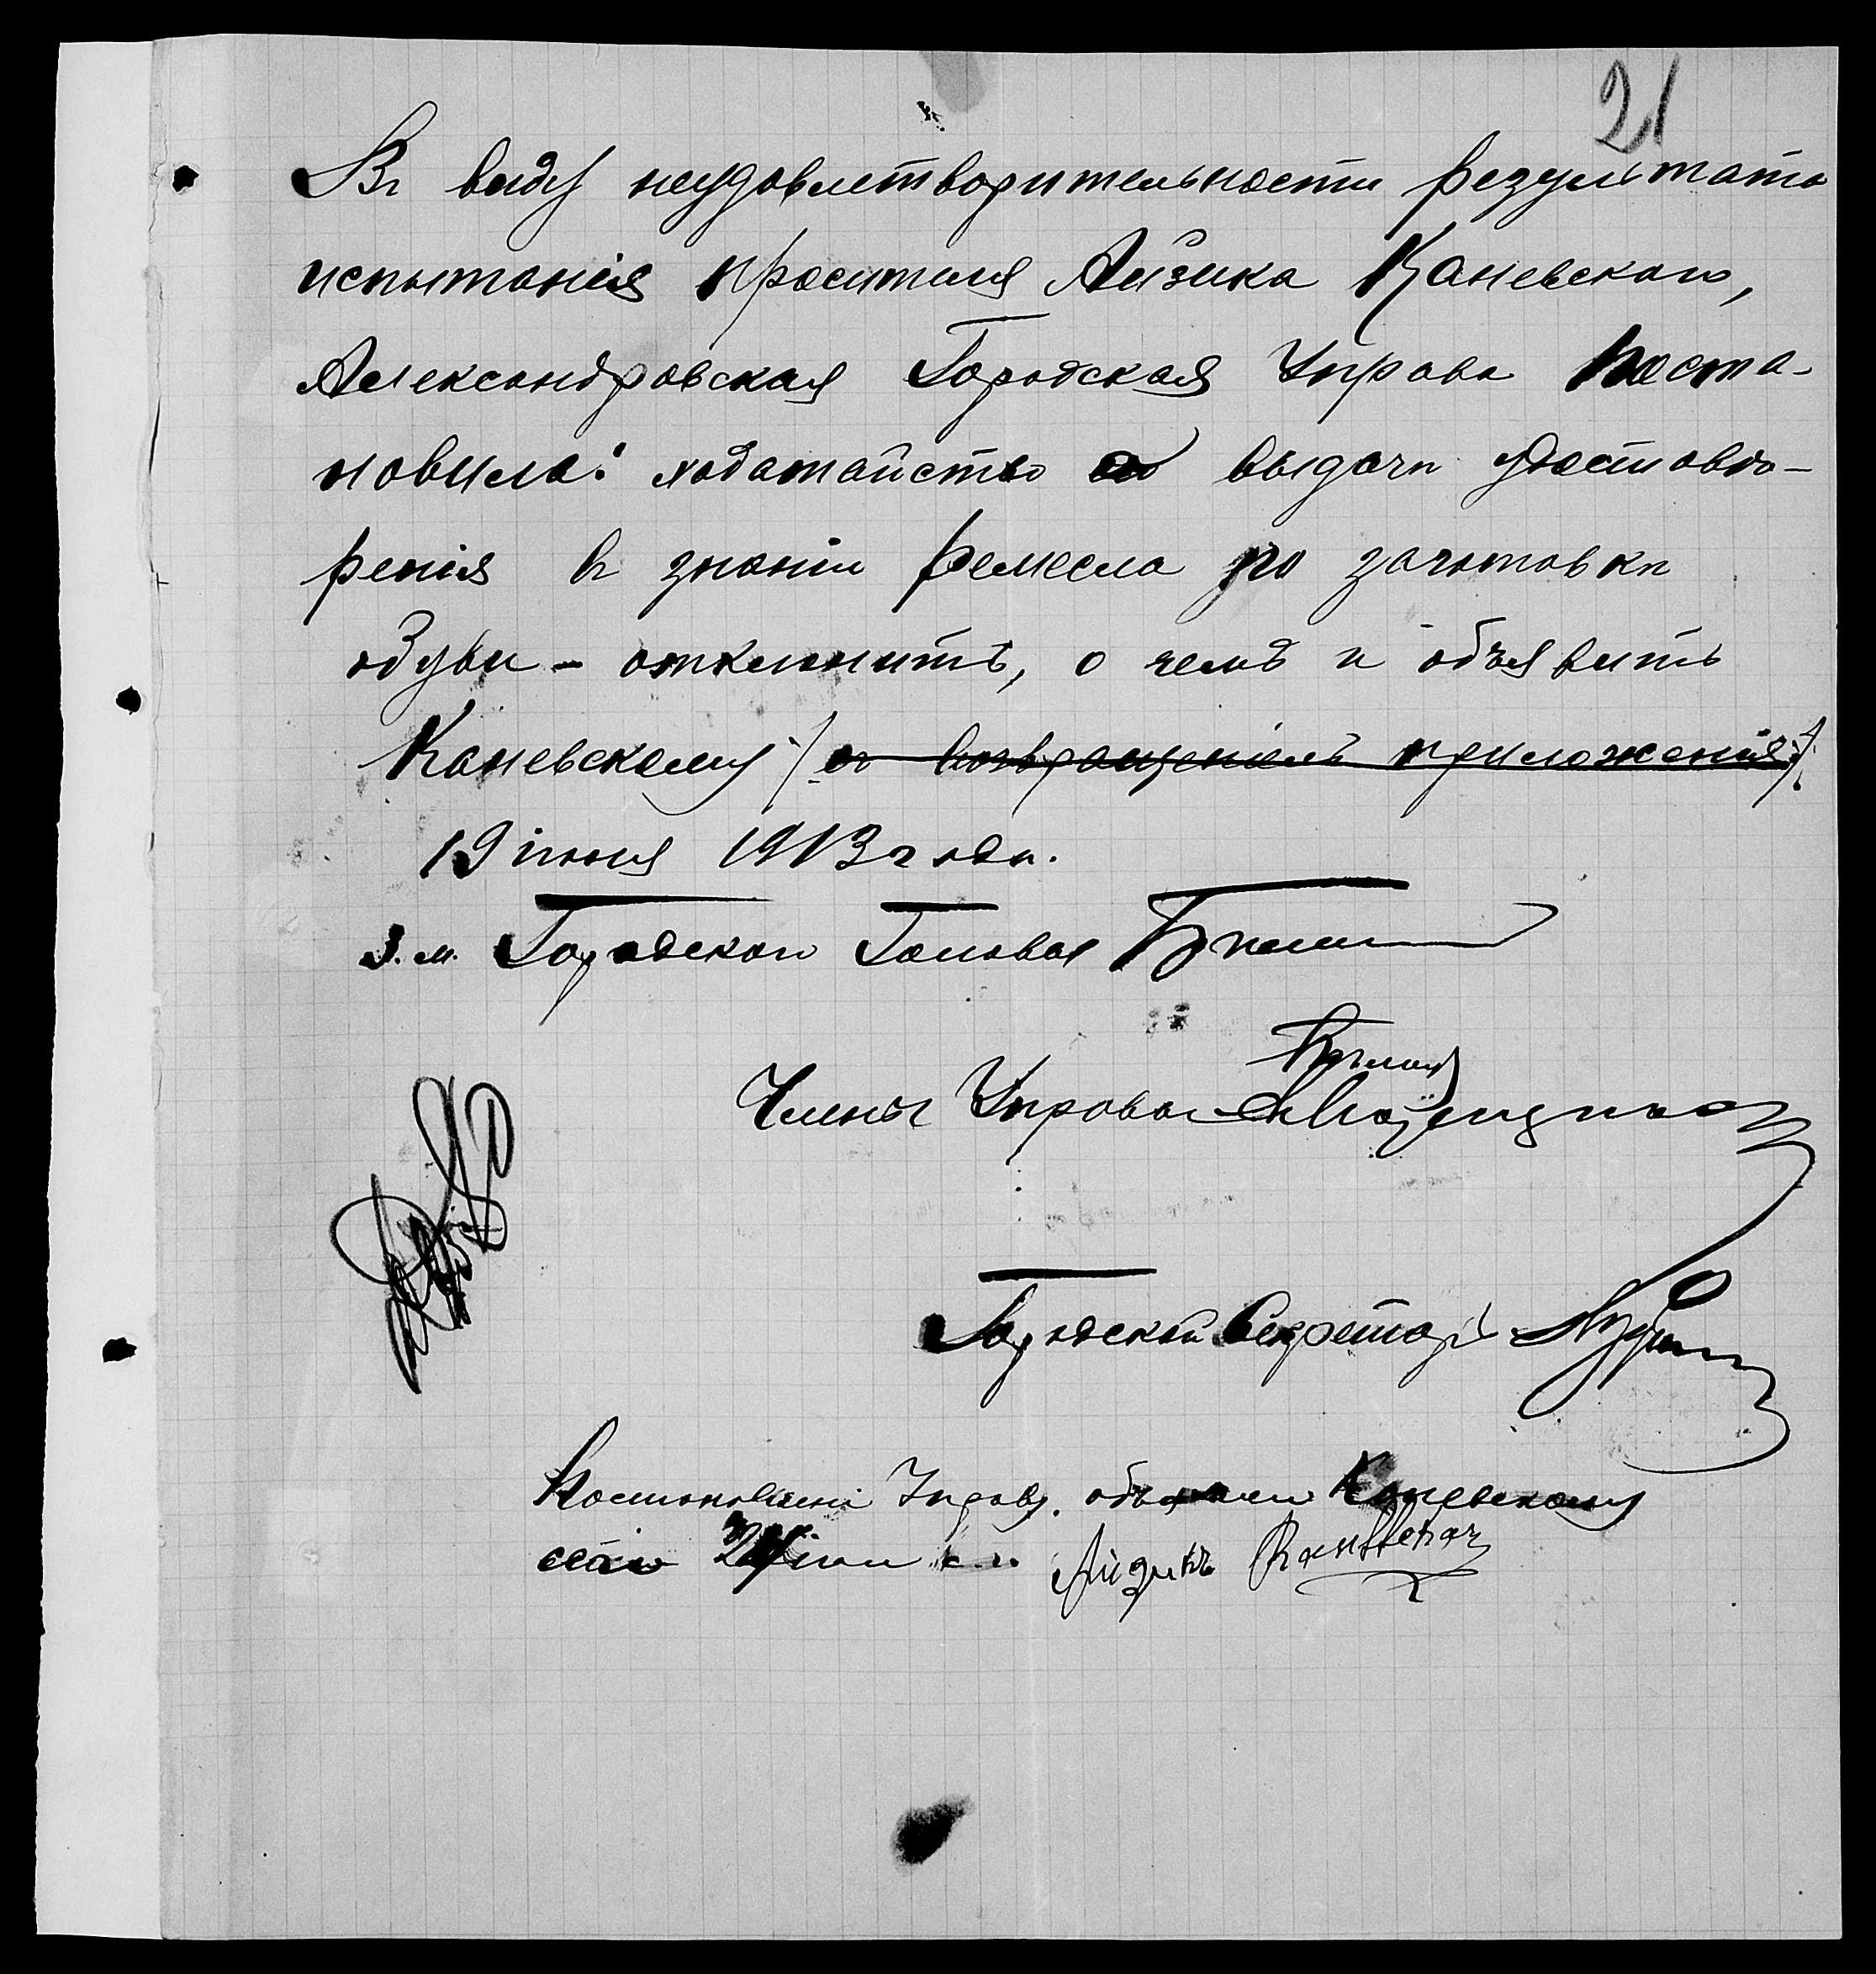 21
Въ виду неудовлетворительности результата
испытанія просителя Айзика Каневскаго,
Александровская Городская Управа поста-
новила: ходатайство о выдачѣ удостовѣ-
ренія въ знаніи ремесла по заготовкѣ
обуви - отклонить, о чемъ и объявить
Каневскому /съ возвращеніемъ приложенія/.
19 іюня 1913 года.
З. м. Городского Головы
Члены Управы
Городской Секретарь
Постановленіе Управы объявлено Каневскому
Айзикъ Каневскій